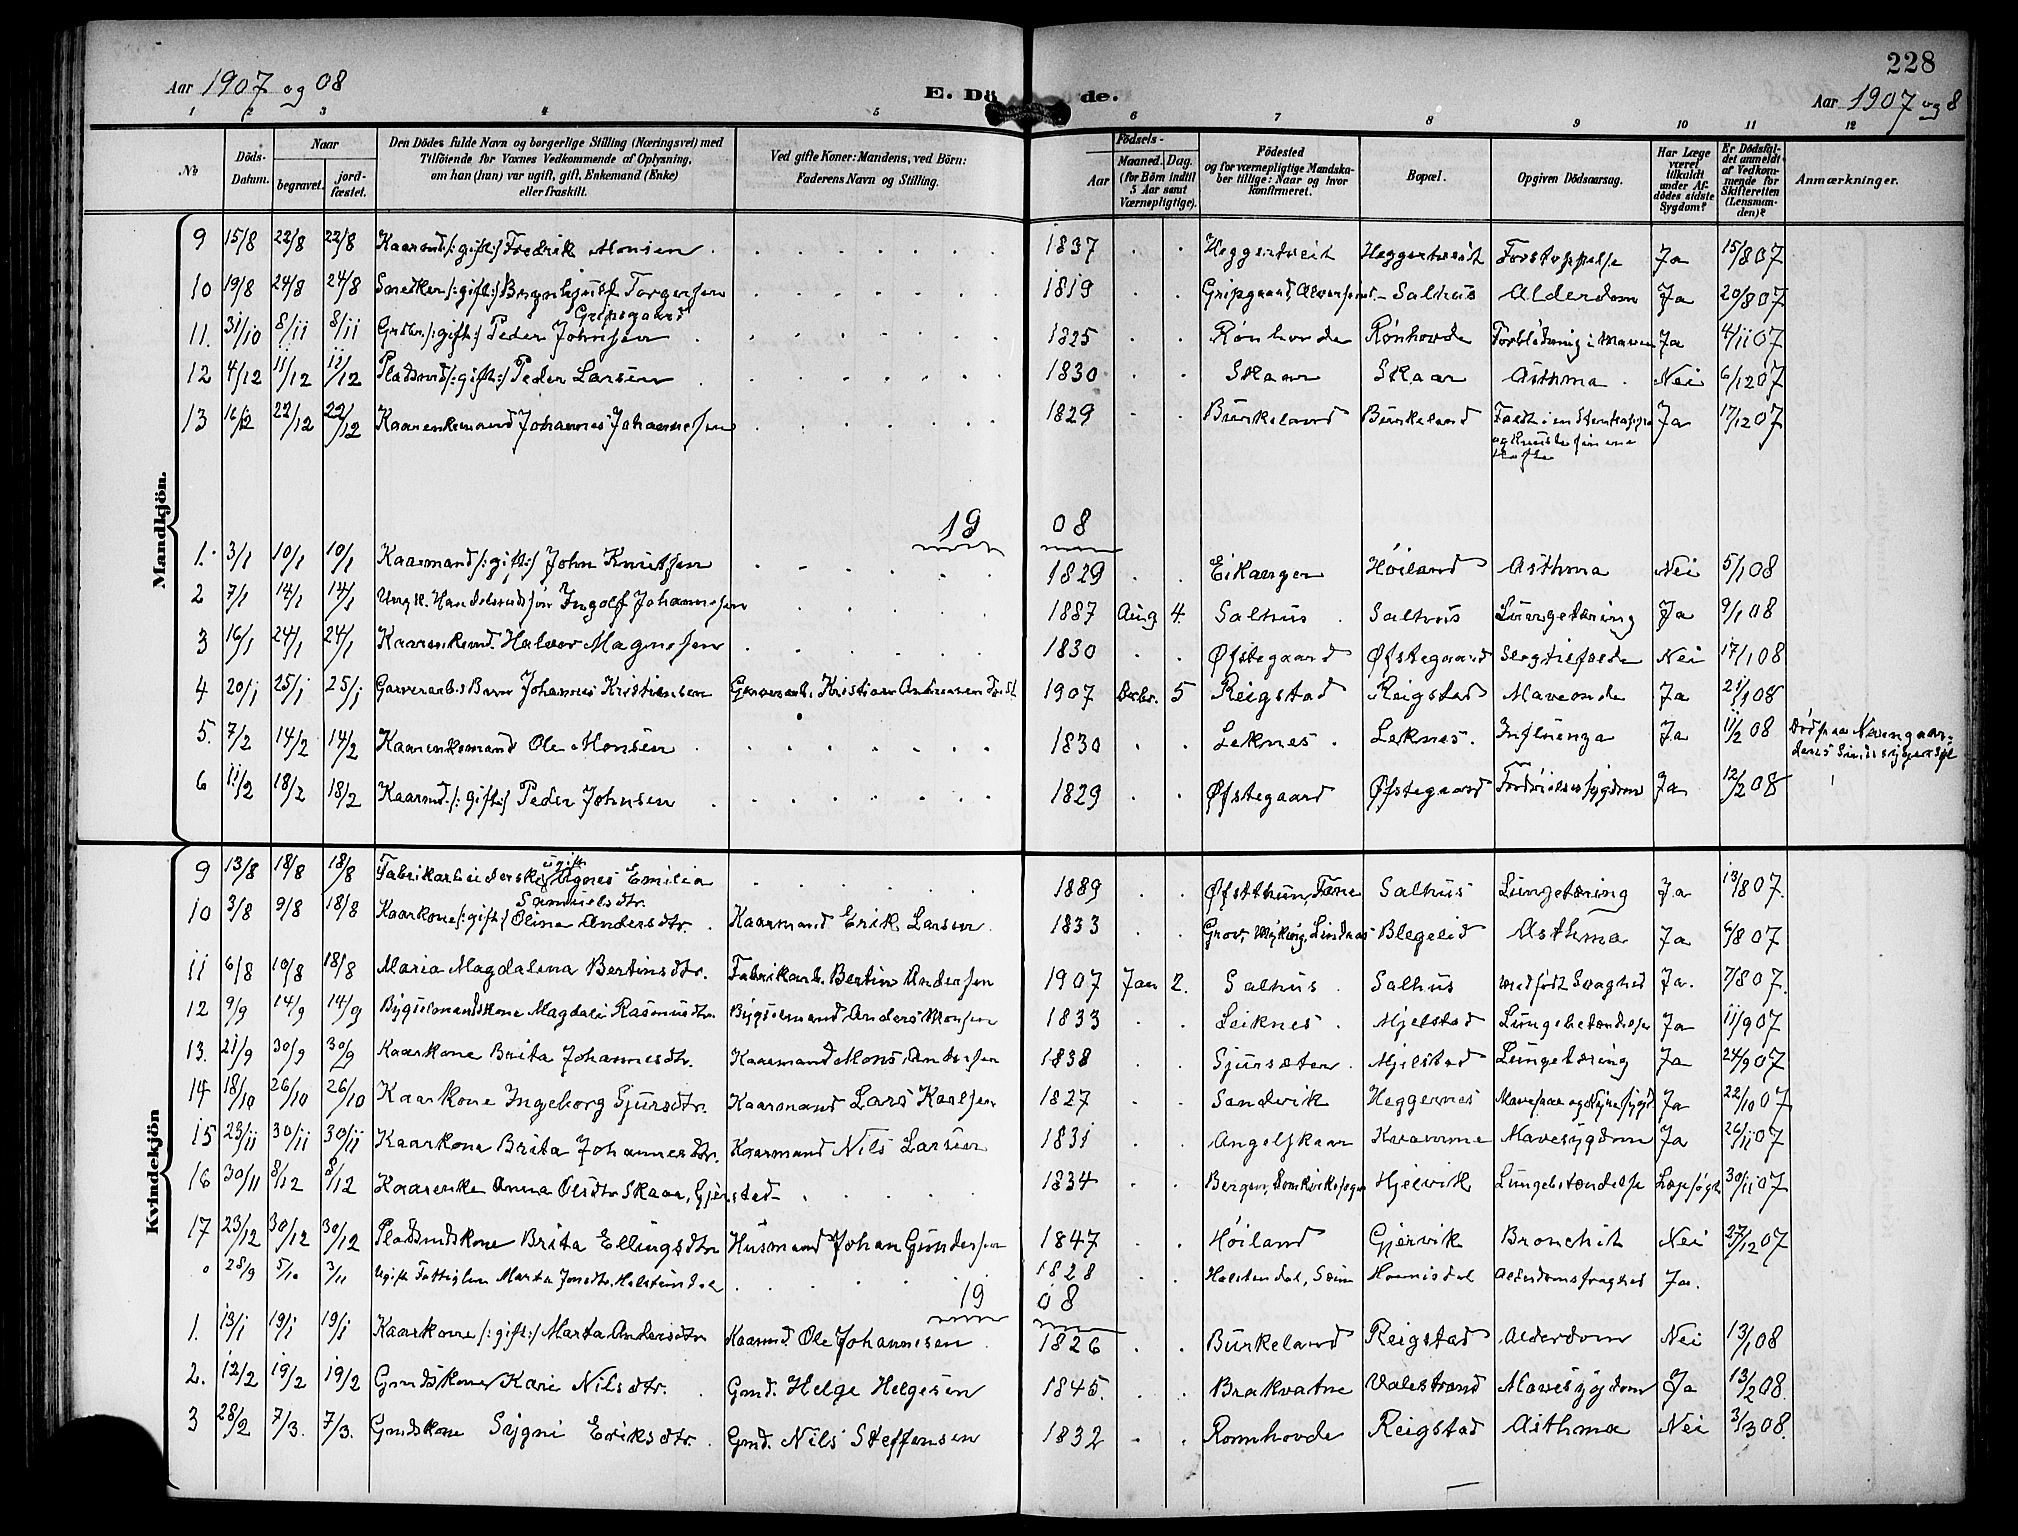 228
Aar 1907 og 08
E. Döde.
Aar 1907 og 8
1 2 3 4 5 6 7 8 9 10 11 12
No
Döds-Datum.
Naar
begravet.
jord-fæstet.
Den Dödes fulde Navn og borgerlige Stilling (Næringsvei) med
Tilföiende for Voxnes Vedkommende af Oplysning,
om han (hun) var ugift, gift, Enkemand (Enke)
eller fraskilt.
Ved gifte Koner: Mandens, ved Börn:
Faderens Navn og Stilling.
Födsels-
Aar
Maaned. Dag.
(for Börn indtil
5 Aar samt
Værnepligtige).
Födested
og for værnepligtige Mandska-
ber tillige: Naar og hvor
konfirmeret.
Bopæl.
Opgiven Dödsaarsag.
Har Læge
været
tilkaldt
under Af-
dödes sidste
Sygdom?
Er Dödsfal-
det anmeldt
af Vedkom-
mende for
Skifteretten
(Lensman-
den)?
Anmærkninger.
Mandkjön.
9 15/8 22/8 22/8 Kaarmd. /: gift :/ Fredrik Monsen 1837 Heggertveit Heggertveit Forstoppelse Ja 15/8 07
10 19/8 24/8 24/8 Snedker /: gift :/ Brynhjulf Torgersen Gripsgaard 1819 Gripgaard, Alversund Salhus Alderdom Ja 20/8 07
11. 31/10 8/11 8/11 Grdbr. /: gift :/ Peder Johnsen 1825 Rønhovde Rønhovde Forblødning i Maven Ja 4/11 07
12 4/12 11/12 11/12 Pladsmd /: gift :/ Peder Larsen 1830 Skaar Skaar Asthma Nei 6/12 07
13 16/12 22/12 22/12 Kaarenkemand Johannes Johannessen 1829 Burkeland Burkeland Faldt i en Stentrappe Ja 17/12 07
1908
1. 3/1 10/1 10/1 Kaarmand /: gift :/ John Knutsen 1829 Eikanger Høiland Asthma Nei 5/1 08
2 7/1 14/1 14/1 Ungk. Handelsmds søn Ingolf Johannesen 1887 Aug 4. Salhus Salhus Lungetæring Ja 9/1 08
3 16/1 24/1 24/1 Kaarenkemd. Halvor Magnesen 1830 Øfstegaard Øfstegaard Slagtilfælde Nei 17/1 08
4 20/1 25/1 25/1 Garverarb.s Barn Johannes Kristiansen Garverarb. Kristian Andreassen 1907 Decbr. 5 Reigstad Reigstad Maveonde Ja 21/1 08
5. 7/2 14/2 14/2 Kaarenkemand Ole Monsen 1830 Leknes Leknes. Influenza Ja 11/2 08 Død paa Neven gaar-
dens Sindssygeasyl
6 11/2 18/2 18/2 Kaarmd. /: gift :/ Peder Johnsen 1829 Øfstegaard Øfstegaard Fordøielsessygdom Ja 12/2 08
Kvindekjön
9 13/8 18/8 18/8 Fabrikarbeiderske ugift Agnes Emilia Samuelsdtr. 1889 Øfstthun, Fane Salhus Lungetæring Ja 13/8 07.
10 3/8 9/8 18/8 Kaarkone /: gift :/ Oline Andersdtr. Kaarmand Erik Larsen 1833 Grov, Myking, Lindaas Blegelid Asthma Ja 6/8 07
11 6/8 10/8 18/8 Maria Magdalena Bertinsdtr. Fabrikarb. Bertin Andersen 1907 Jan 2. Salhus Salhus medfødt Svaghed Ja. 7/8 07.
12 9/9 14/9 14/9 Bygselmandskone Magdali Rasmusdtr. Bygselmand Anders Monsen 1833 Leiknes Mjelstad Lungebetændelse Ja 11/9 07
13. 21/9 30/9 30/9 Kaarkone Brita Johannesdtr. Kaarmand Mons Andersen 1838 Sjursæten Mjelstad Lungetæring Ja 24/9 07
14 18/10 26/10 26/10 Kaarkone Ingeborg Sjursdtr. Kaarmand Lars Karlsen 1827 Sandvik Heggernes Mavesaar og Nyresygd Ja 22/10 07
15 23/11 30/11 30/11 Kaarkone Brita Johannesdtr. Kaarmand Nils Larsen 1831 Angelskaar Kvamme Mavesygdom Ja 26/11 07
16 30/11 8/12 8/12 Kaarenke Anna Olsdtr Skaar, Gjerstad 1834 Bergen, Domkirkesogn Hjelvik Lungebetændelse Læge søgt 30/11 07
17 23/12 30/12 30/12 Pladsmdskone Brita Ellingsdtr Husmand Johan Gundersen 1847 Høiland Gjervik Bronchit Nei 27/12 07
0 28/9 5/10 3/11 Ugift Fattiglem Marta Jonsdtr. Holstendal 1828 Holstendal, Seim Alderdomssvaghed Ja.
1908
1. 13/1 19/1 19/1 Kaarkone /: gift :/ Marta Andersdtr Kaarmd. Ole Johannesen 1826 Burkeland Reigstad Alderdom Nei 13/1 08
2. 12/2 19/2 19/2 Gmdskone Kari Nilsdtr. Gmd. Helge Helgesen 1845. Brakvatne Valestrand Mavesygdom Ja 13/2 08.
3 28/2 7/3. 7/3. Gmdskone Sygni Eriksdtr. Gmd. Nils Steffensen 1832 Romhovde Reigstad Asthma Nei 3/3 08.